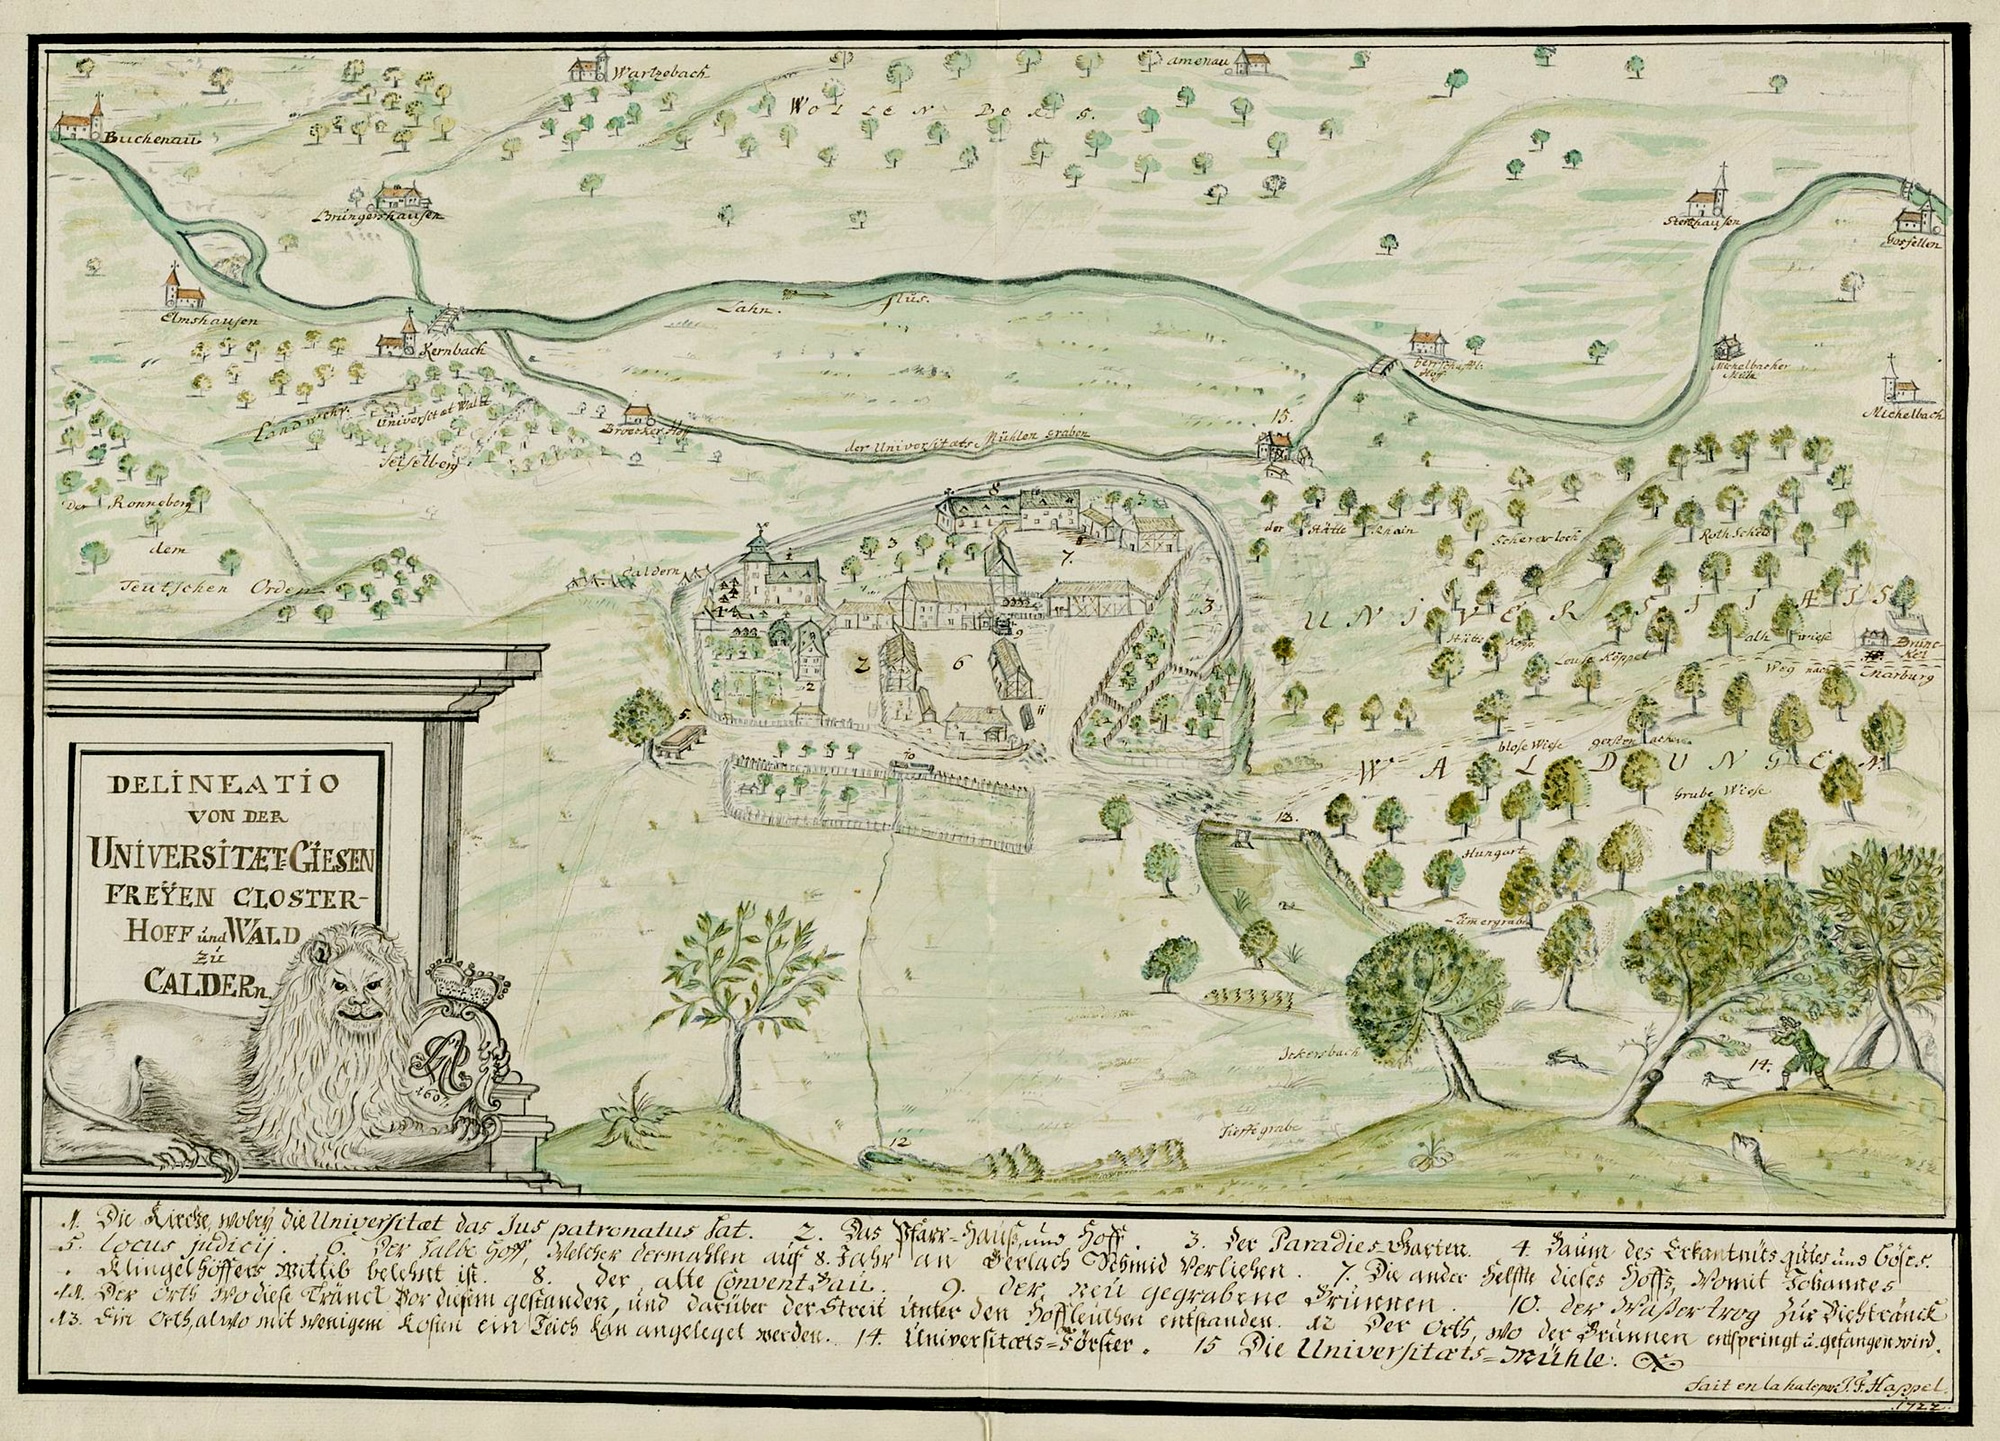 Buchenau
Wartzebach
amenau
WOLLEN BERG.
Brüngershausen
Stertzhausen
Gosfellen
Elmshausen
Kernbach
Lahn. flus.
herrschafftl. Hoff
Michelbacher Mühl
Michelbach
Landwehr.
Universitæt Waldt
Broecker Hoff
Teiselberg
der Universitæts Mühlen graben
15.
Der Ronneberg
dem
Teutschen Orden
Caldern
der Stätte Rhain
Scherersloch
Roth Scheid
UNIVERSITÆTS
Stübe Kopp.
Louse Köppel
alh wiese
Brunckel
Weg nach Marburg
1
2
2
3
3
3
5.
6
7.
8
9
10
11
blose Wiese
gersten acker.
WALDUNGEN
Grube Wiese
13.
Hungart
Lämergrabe
Ickersbach
14.
Tieffe grabe
12
DELINEATIO
VON DER
UNIVERSITÆT-GIESEN
FREŸEN CLOSTER-
HOFF und WALD
zu
CALDERn
1607
1. Die Kirche, wobey die Universitæt das Jus patronatus hat. 2. Das Pfarr-Hauß, und Hoff. 3. Der Paradies-Garten. 4. Baum des Erkäntnüts gutes und böses.
5. locus judicij. 6. Der halbe Hoff, welcher dermahlen auf 8. Jahr an Gerlach Schmid verliehen. 7. Die ander Helffte dieses Hoffs, womit Johannes
Klingelhöffers Wittib belehnt ist. 8. der alte Convent Bau. 9. der neu gegrabene Brunnen. 10. der Waßertrog zur Viehtränck
11. Der Orth wo diese Tränck vor diesem gestanden, und darüber der Streit unter den Hoffleuthen entstanden. 12 Der Orth, wo der Brunnen entspringt u. gefangen wird.
13. Ein Orth, alwo mit wenigem Kosten ein Teich kan angeleget werden. 14. Universitæts=Förster. 15 Die Universitæts=Mühle.
fait en la hate par J. F. Happel.
1722.